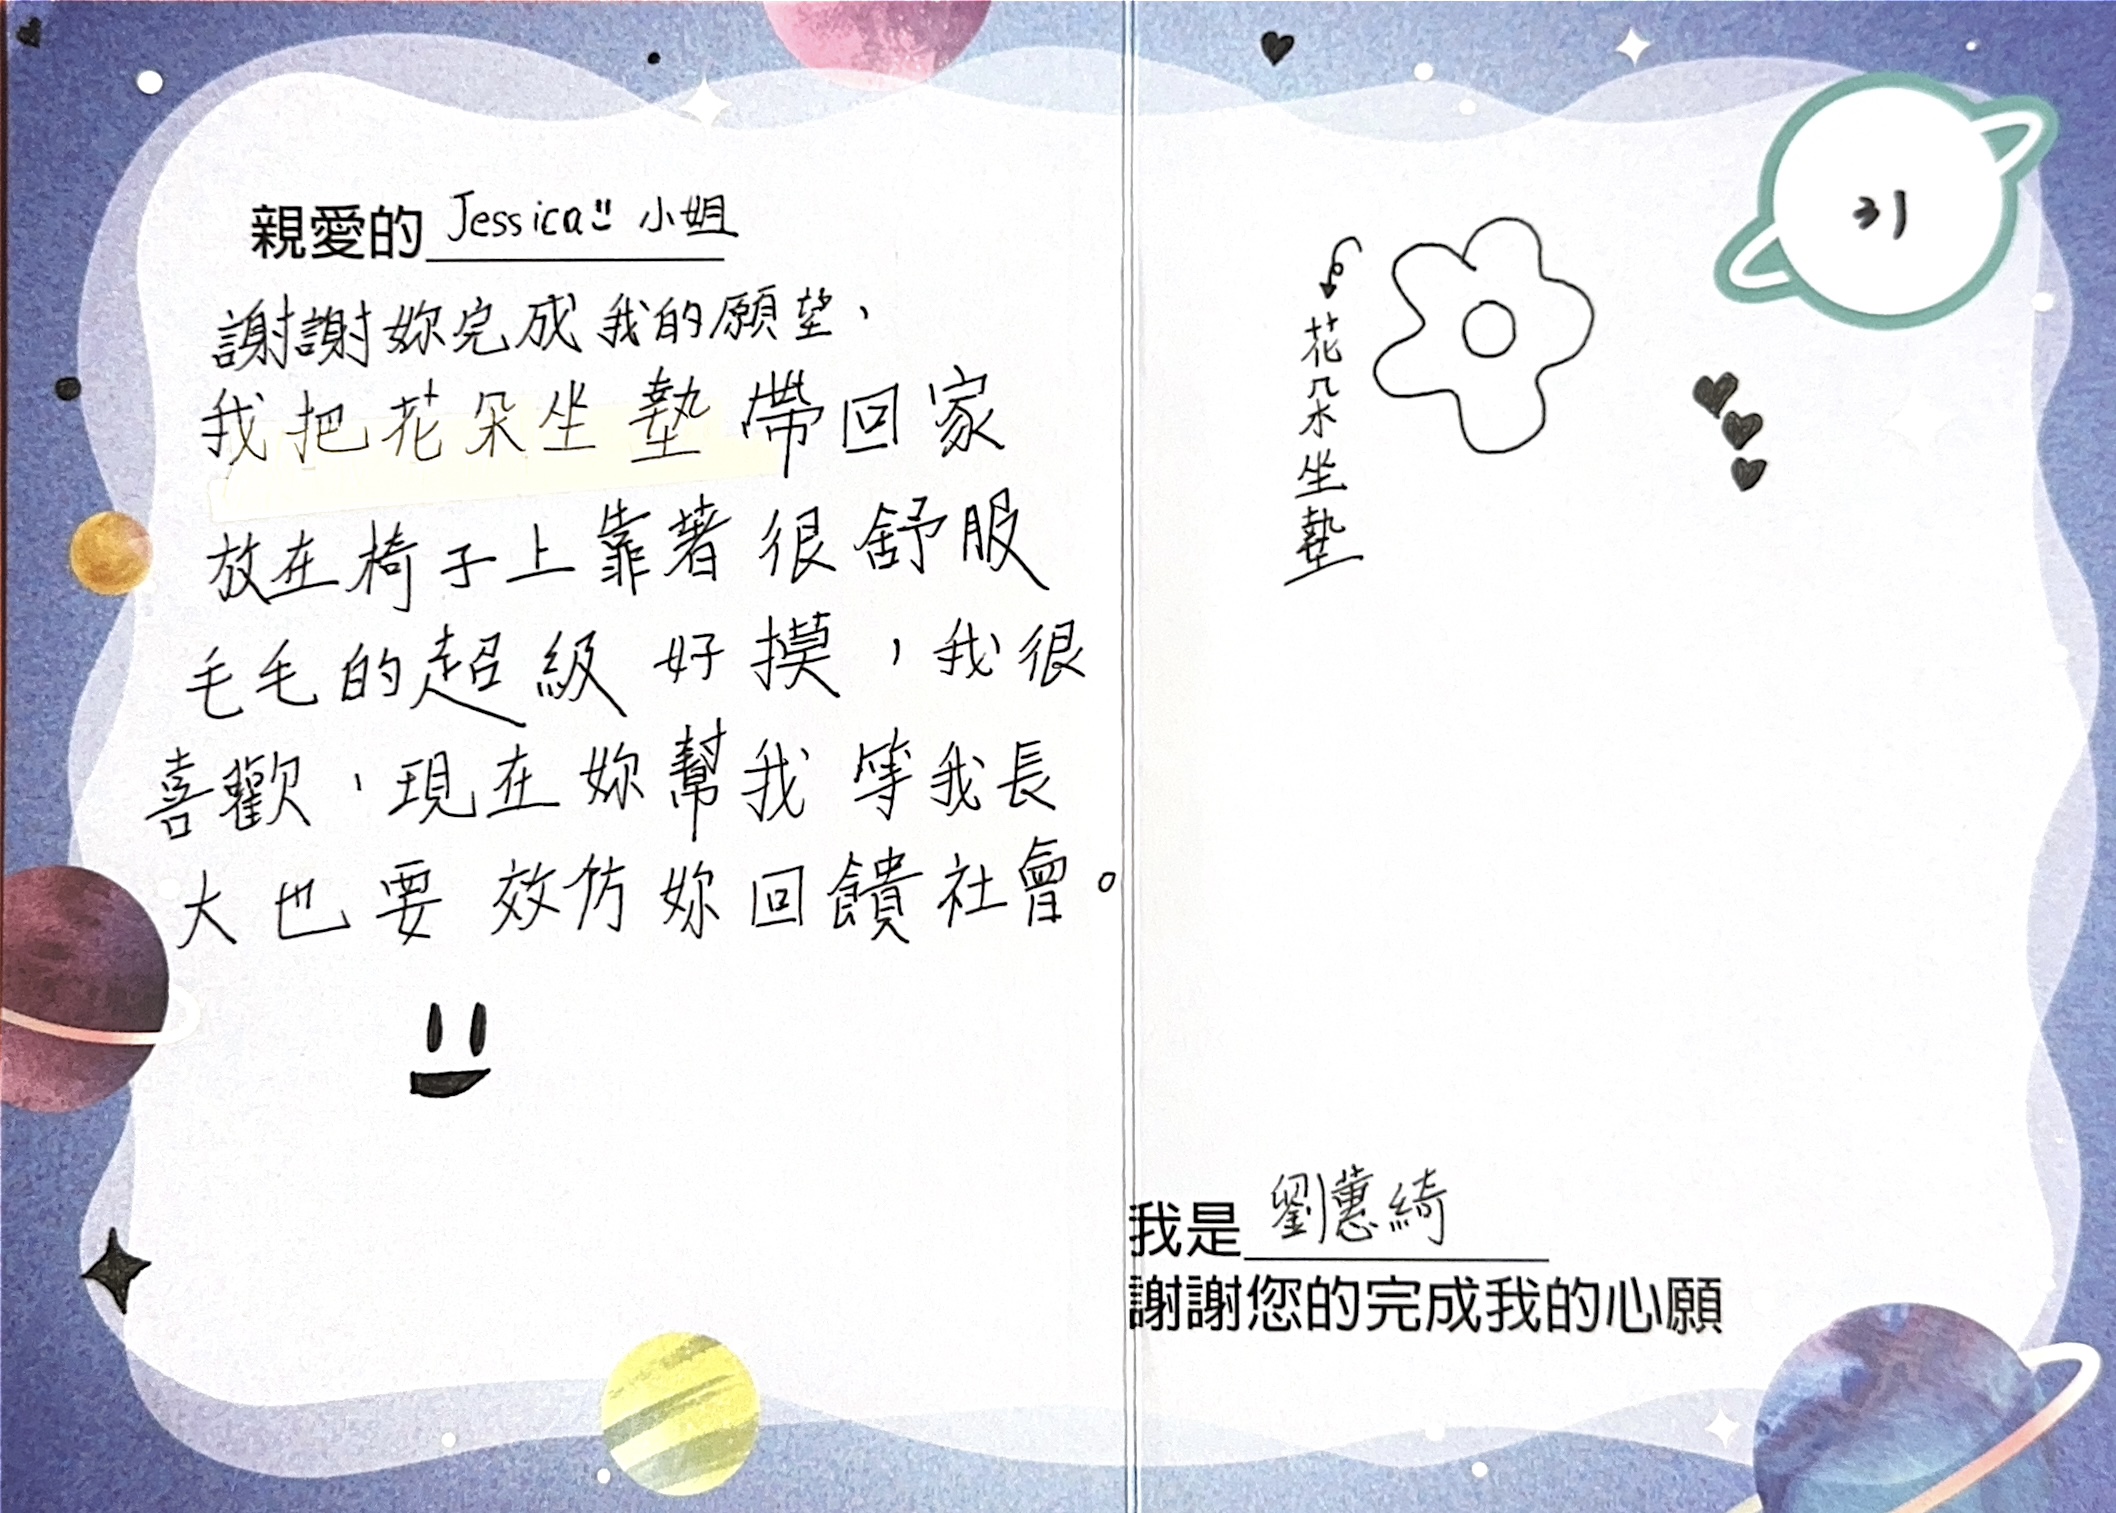 親愛的 Jessica 小姐
謝謝妳完成我的願望,
我把花朵坐墊帶回家
放在椅子上靠著很舒服
毛毛的超級好摸,我很
喜歡,現在妳幫我等我長
大也要效仿妳回饋社會。
31
花朵坐墊
我是劉蕙綺
謝謝您的完成我的心願